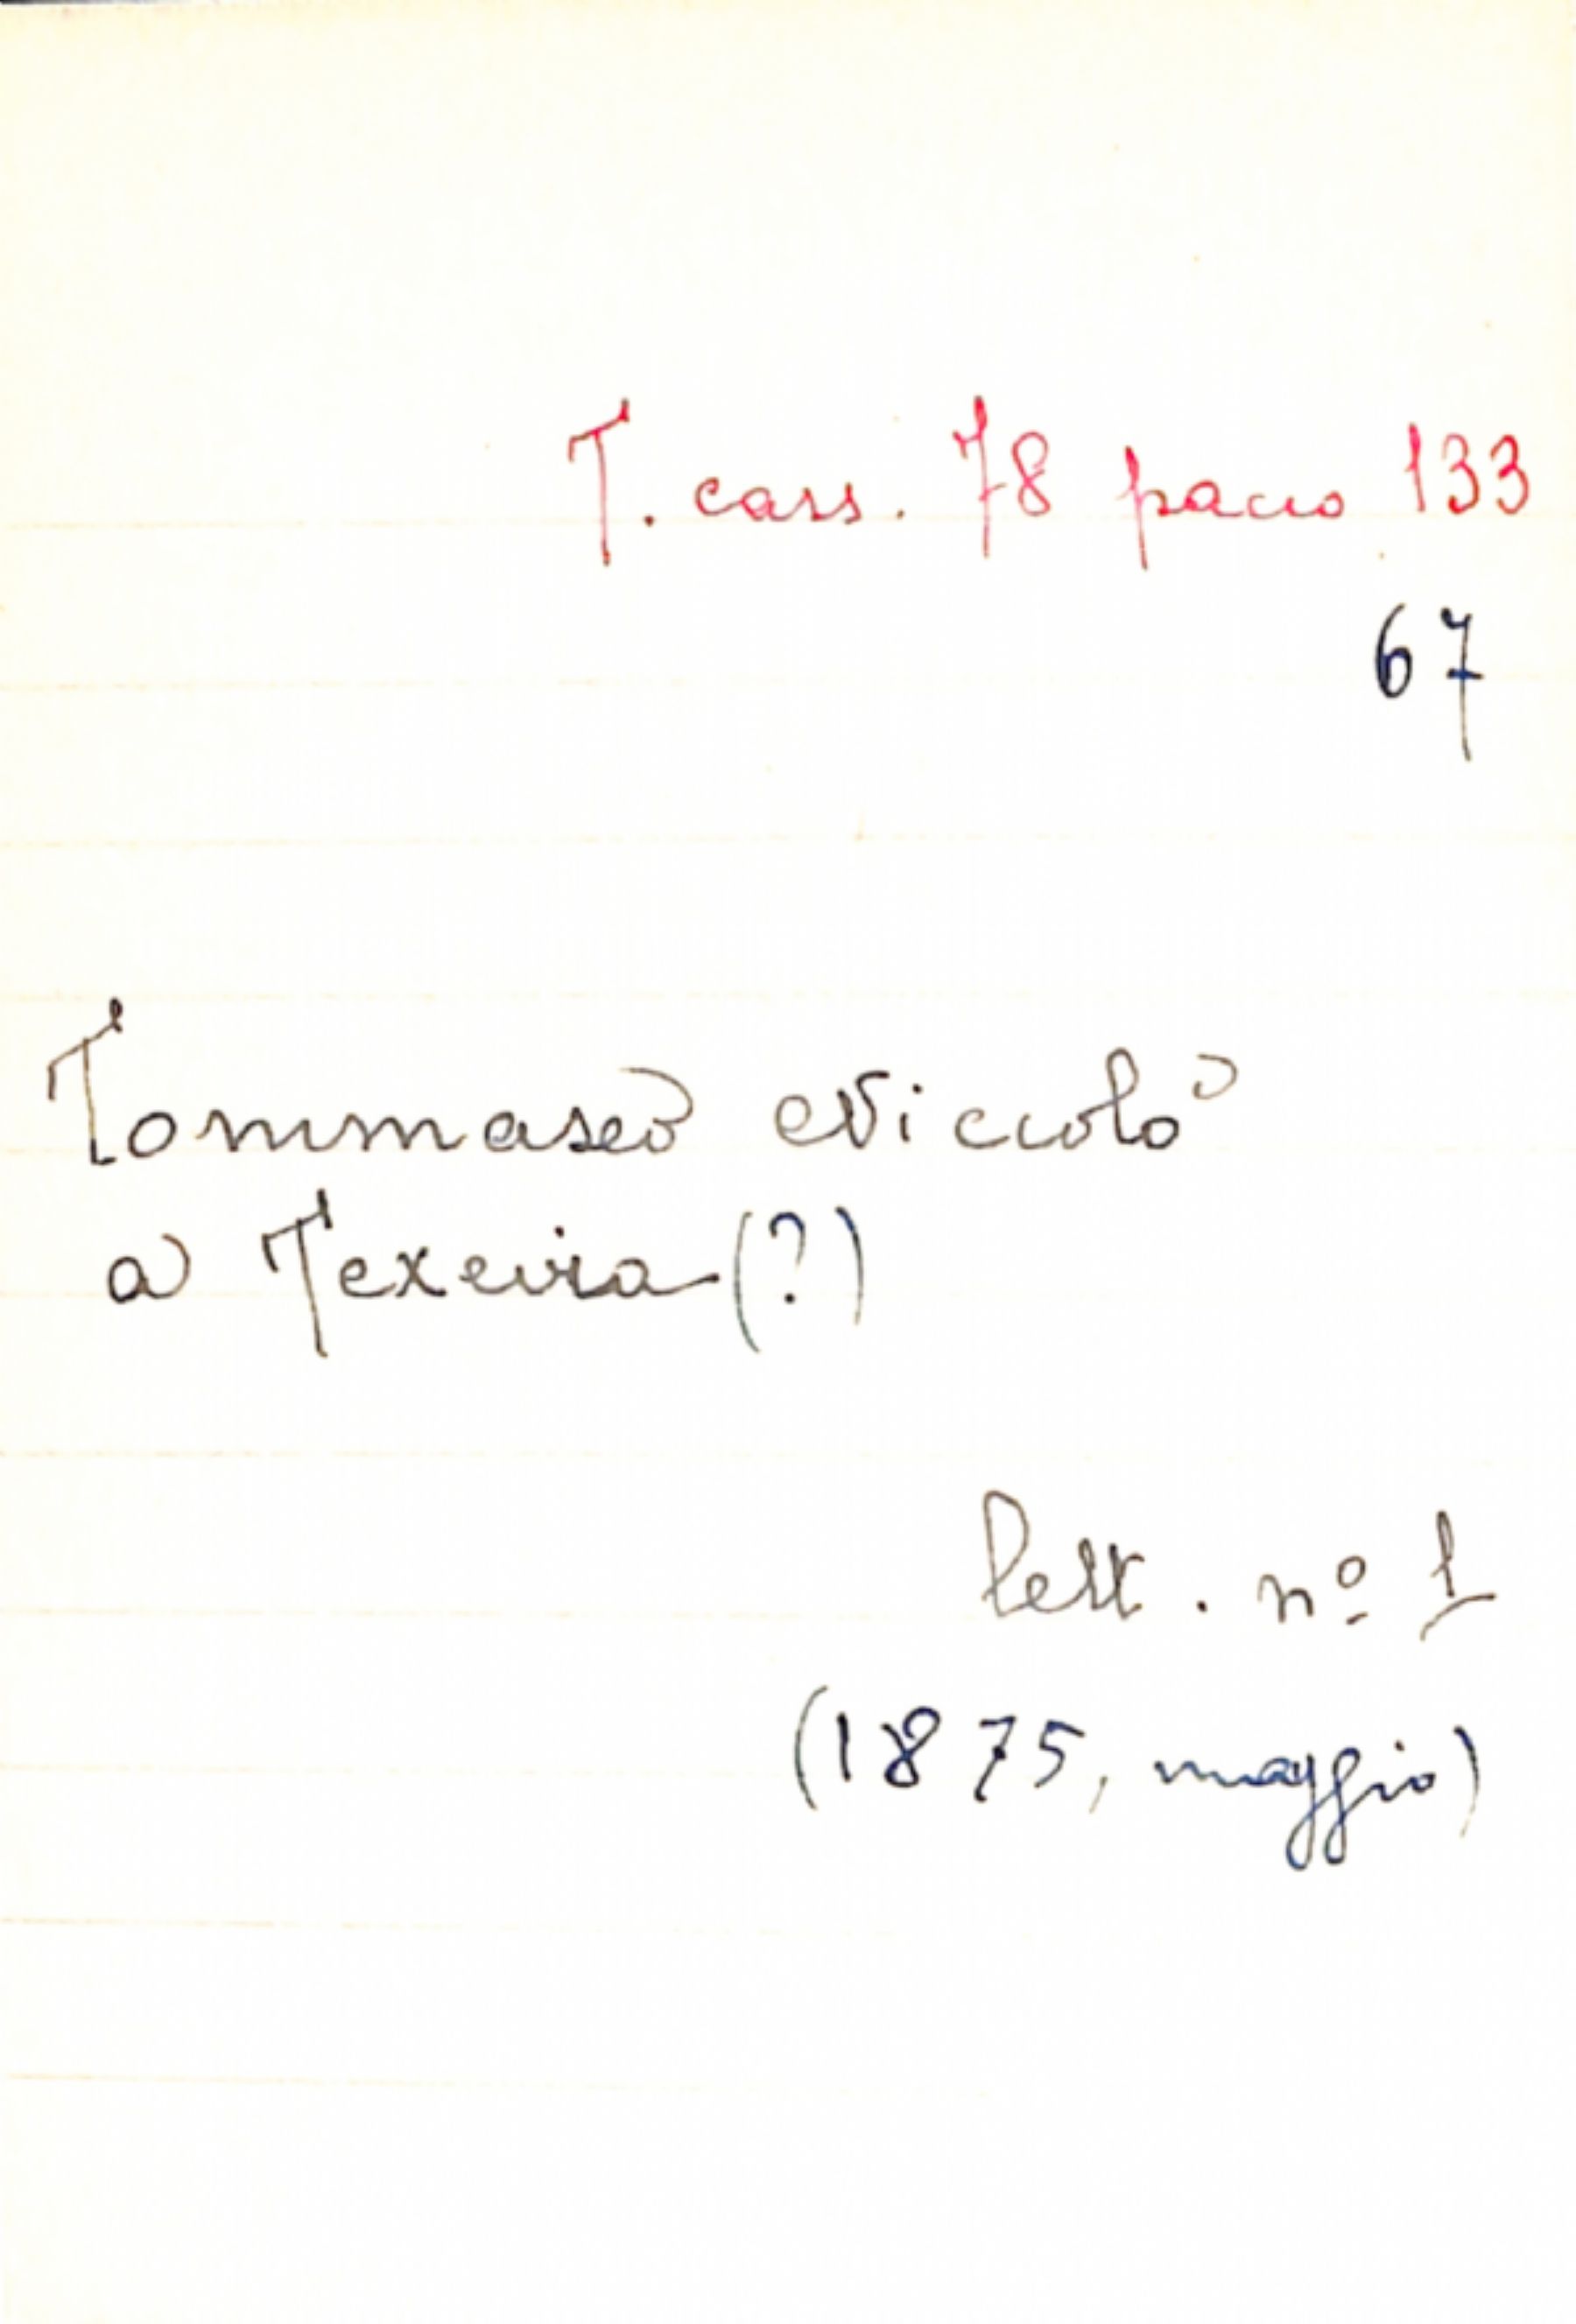 T. cass. 78 pacco 133
67
Tommaseo Niccolò
a Texeira (?)
Lett. nº 1
(1875, maggio)